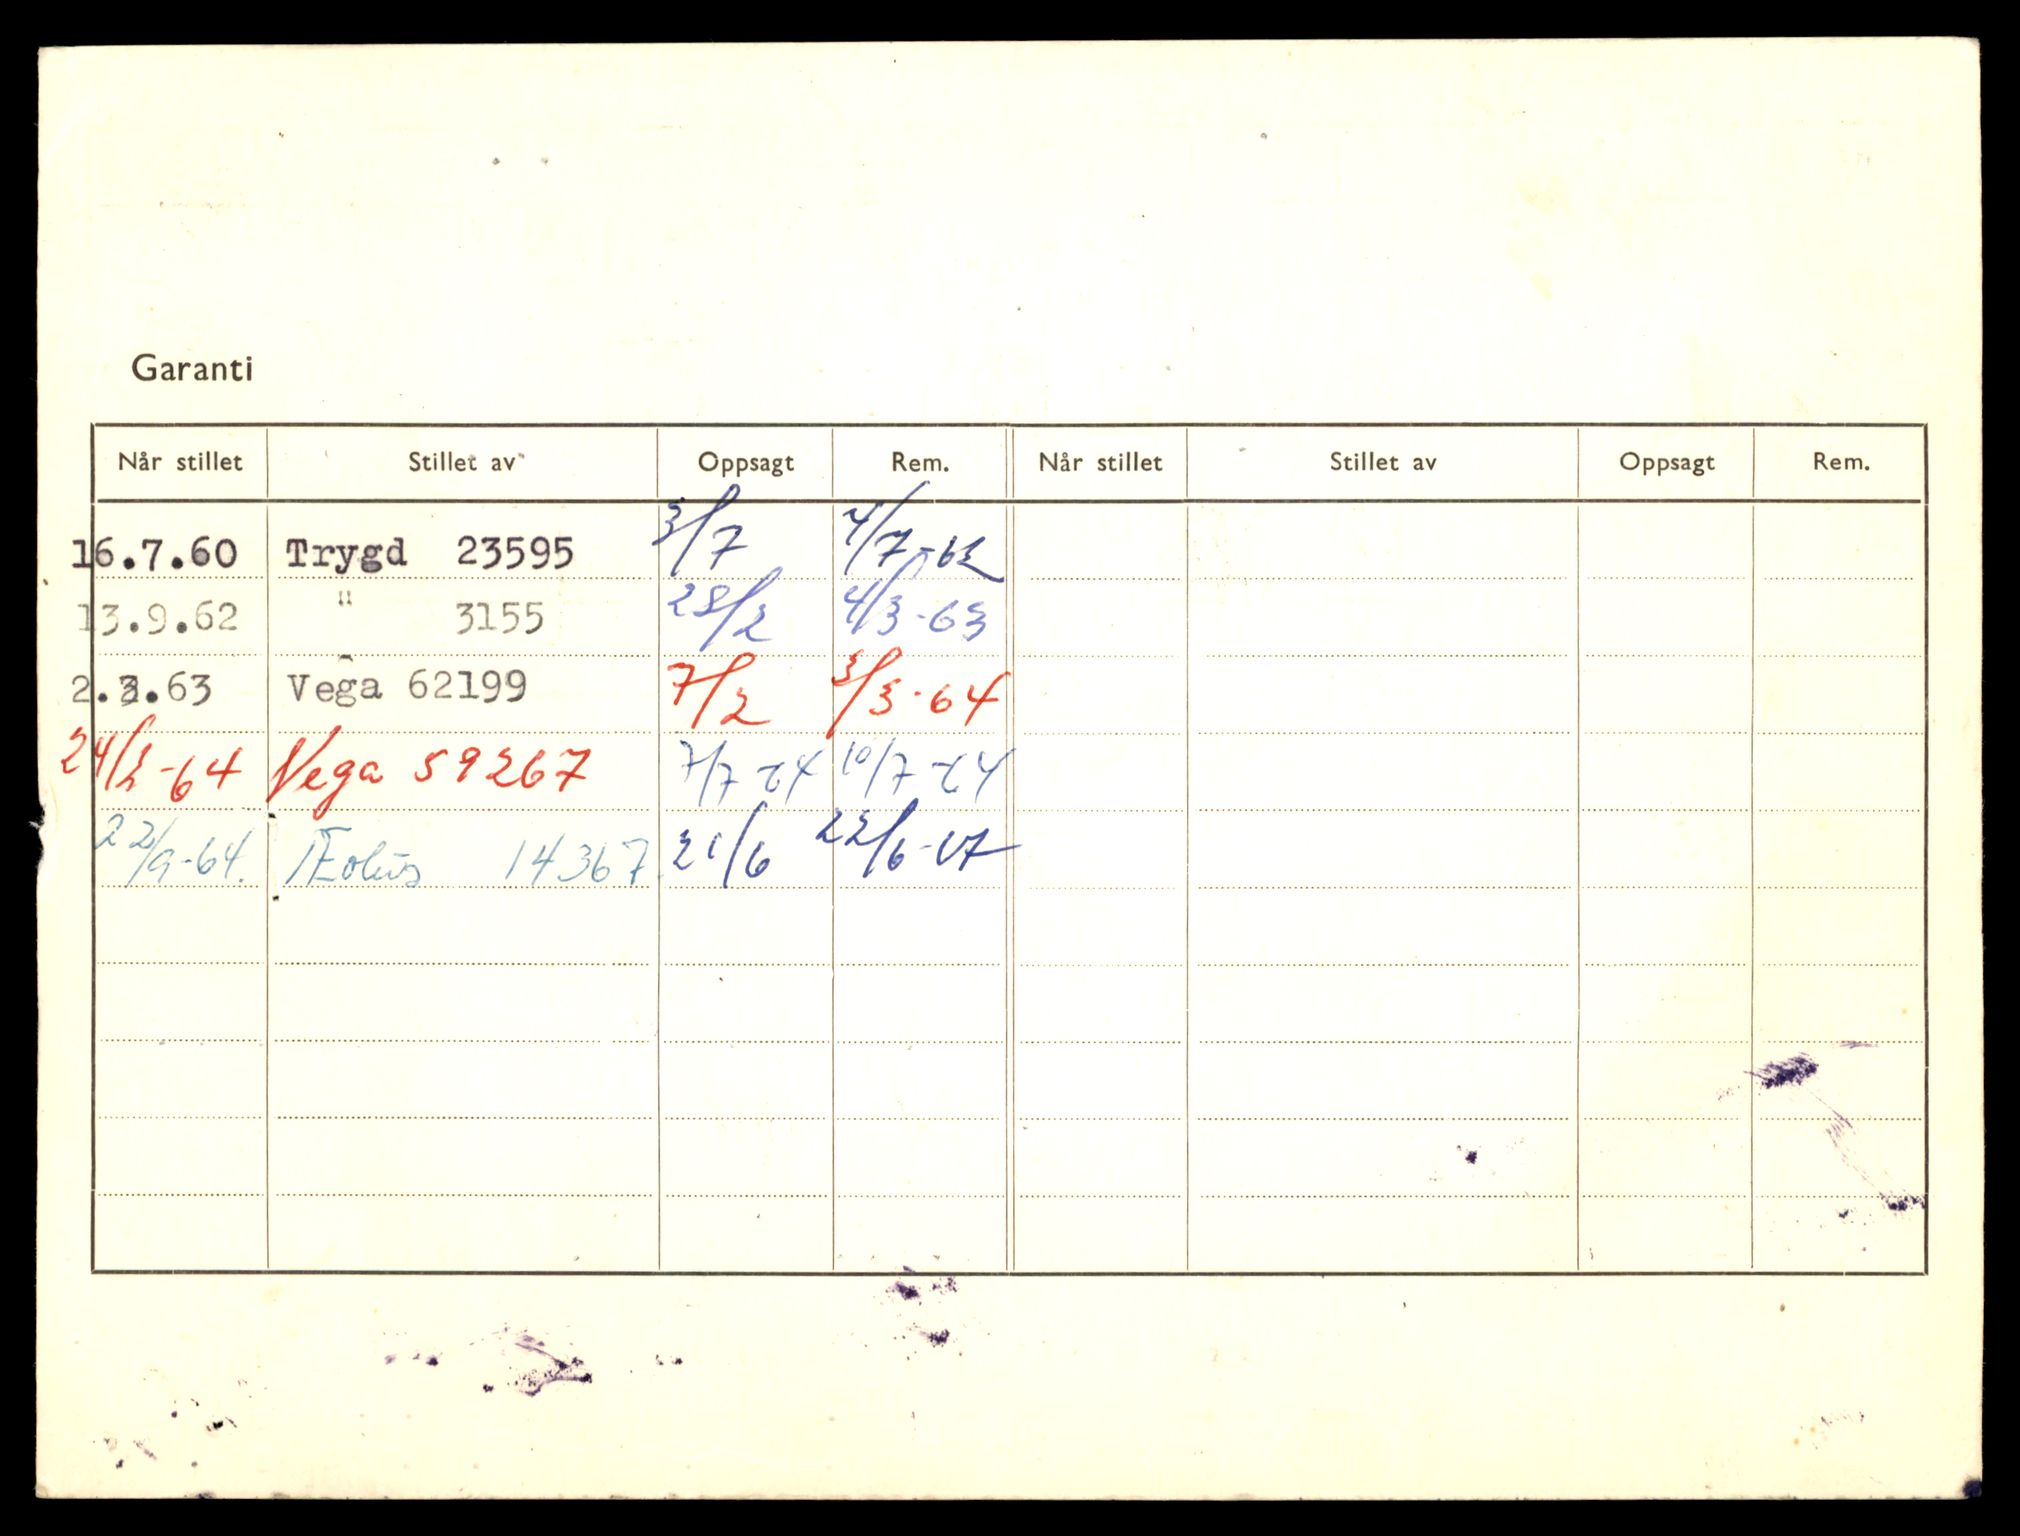 Garanti
Når stillet Stillet av Oppsagt Rem. Når stillet Stillet av Oppsagt Rem.
16.7.60 Trygd 23595 3/7 4/7-62
13.9.62 " 3155 28/2 4/3-63
2.3.63 Vega 62199 7/2 3/3-64
24/2-64 Vega 59267 7/7-64 10/7-64
22/9-64. Æolus 14367. 21/6 22/6-67